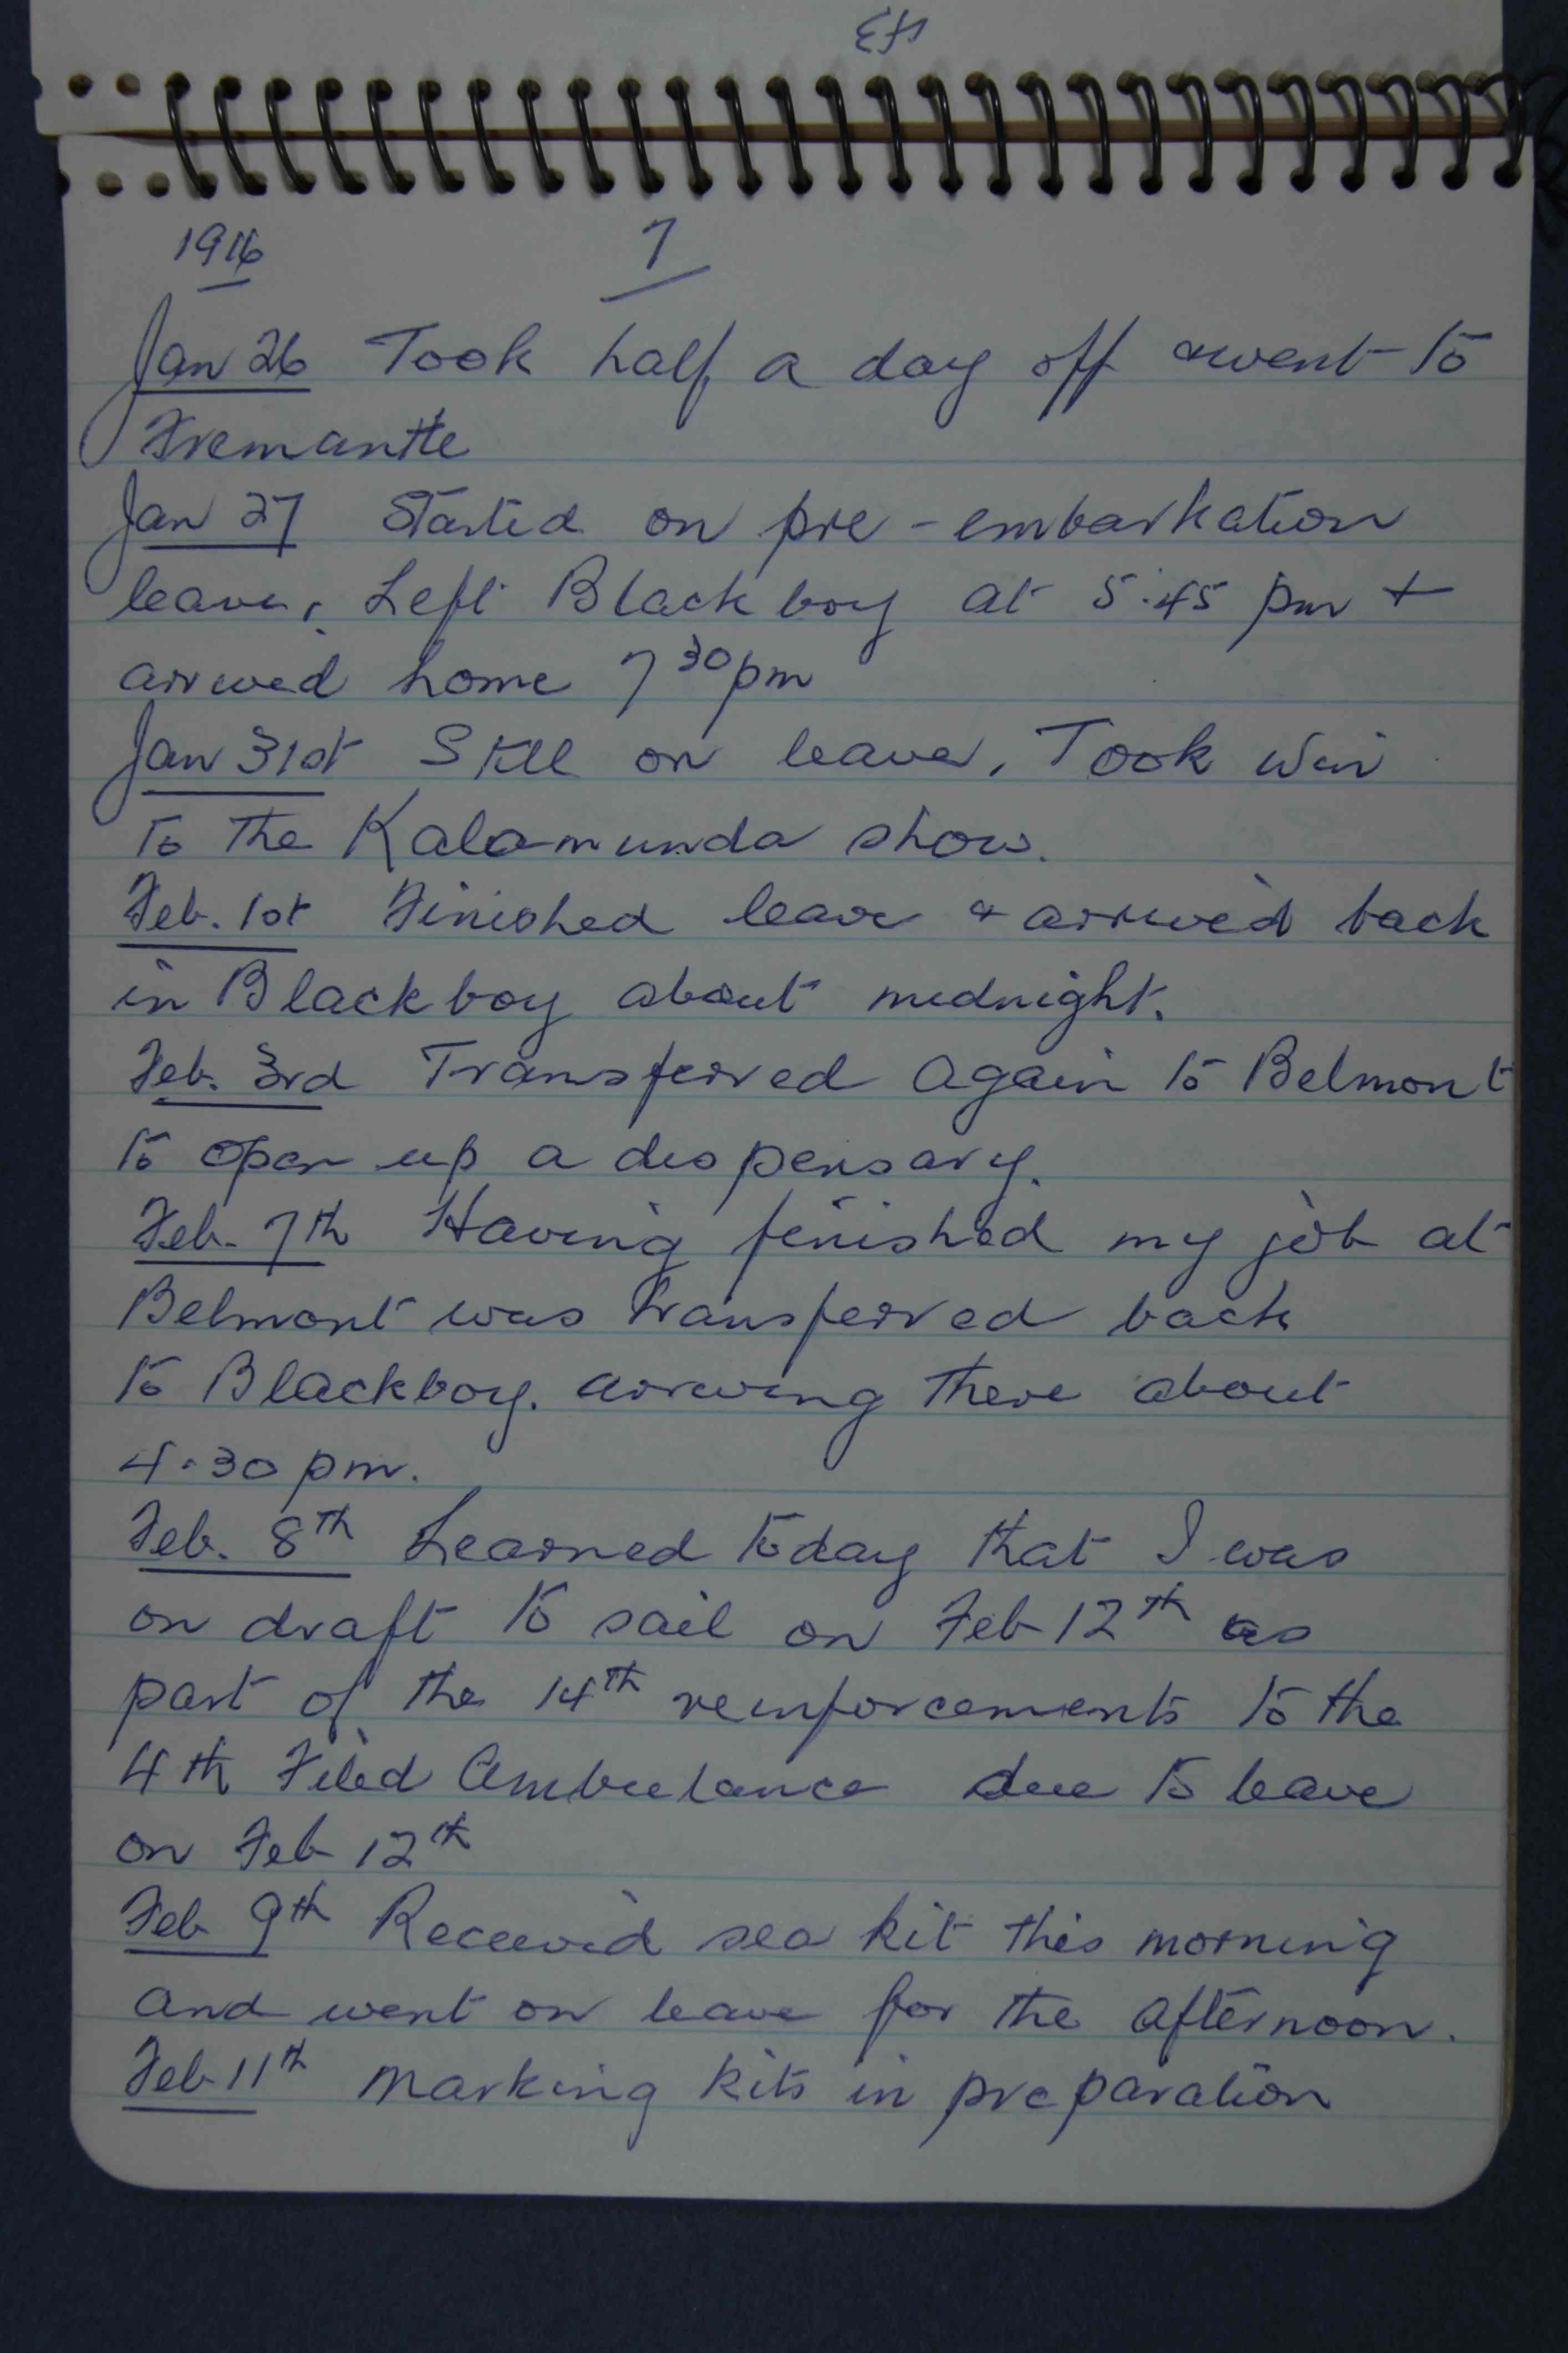 43
1916 7
Jan 26 Took half a day off & went to
Fremantle
Jan 27 Started on pre-embarkation
leave, Left Blackboy at 5.45 pm +
arrived home 7 30 pm
Jan 31st Still on leave. Took Win
to the Kalamunda show.
Feb. 1st Finished leave & arrived back
in Blackboy about midnight.
Feb. 3rd Transferred again to Belmont
to open up a dispensary.
Feb. 7th Having finished my job at
Belmont was transferred back
to Blackboy. arriving there about
4.30 pm.
Feb. 8th Learned today that I was
on draft to sail on Feb 12th as
part of the 14th reinforcements to the
4th Field Ambulance due to leave
on Feb 12th
Feb 9th Received sea kit this morning
and went on leave for the afternoon.
Feb 11th Marking kits in preparation